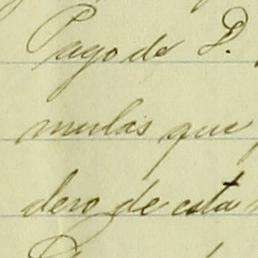 Pago de P.
mulas que
dero de esta